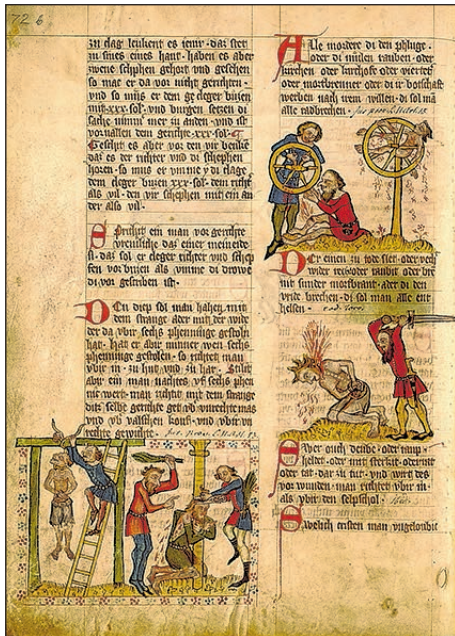 726
zu clag leukent es iemr · daz ster
zu sines eines hant · haben es aber
zwene schphen gehort vnd gesehen
so mac er da vor nicht gerichten ·
vnd so mus er dem cleger buzen
mit xxx · sol · vnd burgen setzen di
sache nimmer zu anden · vnd ist
vor vallen dem gerichte · xxx · sol ·
Geschit es aber vor den vir benken
daz es der richter vnd di schephen
horen · so mus er vmme di clage
dem cleger buzen xxx · sol · dem richt
als vil · den vir schephen mit ein an
der also vil ·
Sprichet ein man vor gerichte
daz einer meineide
ist · daz sol er cleger richter vnd schep
fen vor buzen als vmme di drowe
di vor geschriben ist ·
Den diep sol man hahen mit
dem strange ader mit der wide
der da vbir sechs phenninge gestoln
hat · hat er abir minner wen sechs
phenninge gestolen · so richtet man
vbir in · zu hut vnd zu har ·
abir ein man nachtes vf sechs phen
nic wert · man richtit mit dem strange
dits selbe gerichte get vb vnrechte mas
vnd vb valschen kouf · vnd vbir vn
rechte gewichte ·
Alle mordere di den phluge ·
oder di mulen rauben · oder
kirchen · oder kirchofe oder vorreter
oder mortbrenner oder di ir botschaft
werben nach irem willen · di sol man
alle radbrechen ·
Der einen zu tode slet · oder veht
wider reht oder raubit · oder bre
nit sunder mortbrant · oder di den
vride brechen · di sol man alle ent
helsen ·
Swer ouch deube · oder roup ·
heldet · oder mit sterkit · oder mit
oder tat · daz zu tut · vnd wirt des
vor wunden · man richtet vbir in ·
als vbir den selpschol ·
Swelich cristen man vngeloubic